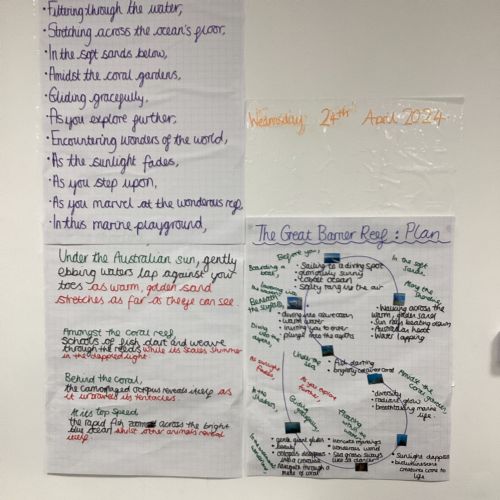 • Filtering through the water,
• Stretching across the ocean's floor,
• In the soft sands below,
• Amidst the coral gardens,
• Gliding gracefully,
• As you explore further,
• Encountering wonders of the world,
• As the sunlight fades,
• As you step upon,
• As you marvel at the wonderous reef,
• In this marine playground,
Wednesday 24th April 2024
Under the Australian sun, gently
ebbing waters lap against your
toes as warm, golden sand
stretches as far as the eye can see.
Amongst the coral reef,
Schools of fish dart and weave
through the reeds while its scales shimmer
in the dappled light.
Behind the coral,
the camouflaged octopus reveals itself as
it unravels its tentacles.
At its top speed
the rapid fish across the bright
blue ocean whilst other animals reveal
itself.
The Great Barrier Reef : Plan
Before you,
Boarding a
boat,
• Sailing to a diving spot
• gloriously sunny
• cobalt ocean
• Salty tang in the air
In the soft
sands,
Along the
shoreline,
• Walking across the
warm, golden sand
• Sun rays beating down
• Australian heat
• Water lapping
Beneath
the surface,
• diving into clear ocean
• warm water
• inviting you to enter
• plunge into the depths
Diving into
the depths,
Under the
sea,
• Fish darting
• brightly coloured coral
Amidst the
coral garden,
As sunlight
fades,
As you explore
further,
• diversity
• radiant glows
• breathtaking marine
life
In the
shadows,
Gliding
gracefully,
• gentle giant glides
• beauty
• octopus disappears
into a crevice
• navigates through a
maze of coral
• intricate markings
• wonderous world
• Sea grass sways
• Sunlight dapples
• bioluminescent
creatures come to
life